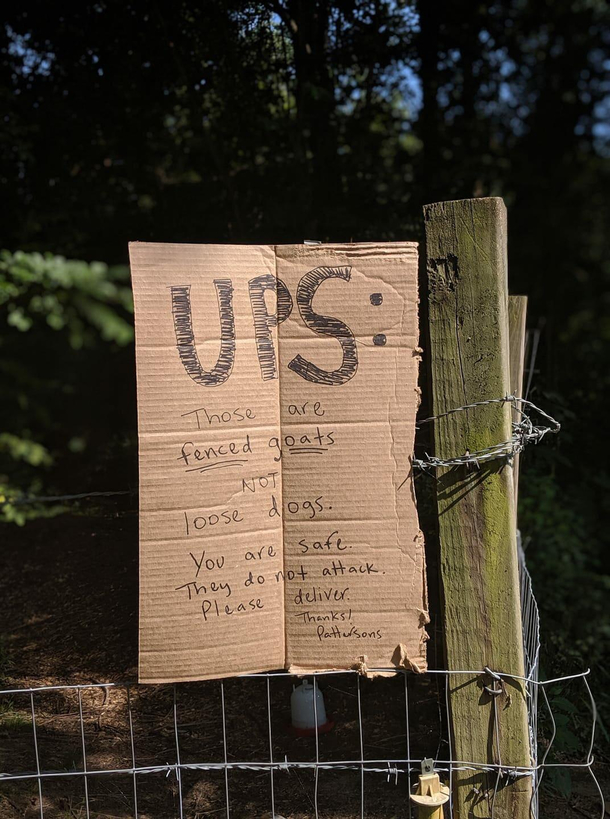 UPS:
Those are
fenced goats
NOT
loose dogs.
You are safe.
They do not attack.
Please deliver.
Thanks!
Pattersons